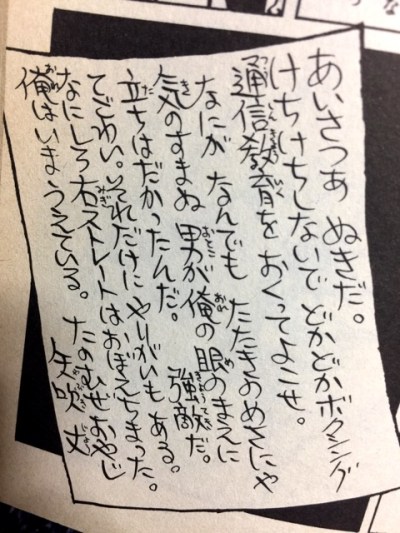 あいさつあ ぬきだ。
けちけちしないで どかどかボクシング
通信教育を おくってよこせ。
なにが なんでも たたきのめさにゃ
気のすまぬ 男が俺の眼のまえに
立ちはだかったんだ。 強敵だ。
てごわい。それだけに やりがいもある。
なにしろ右ストレートはおぼえちまった。
俺はいま うえている。 たのむぜおやじ
矢吹丈